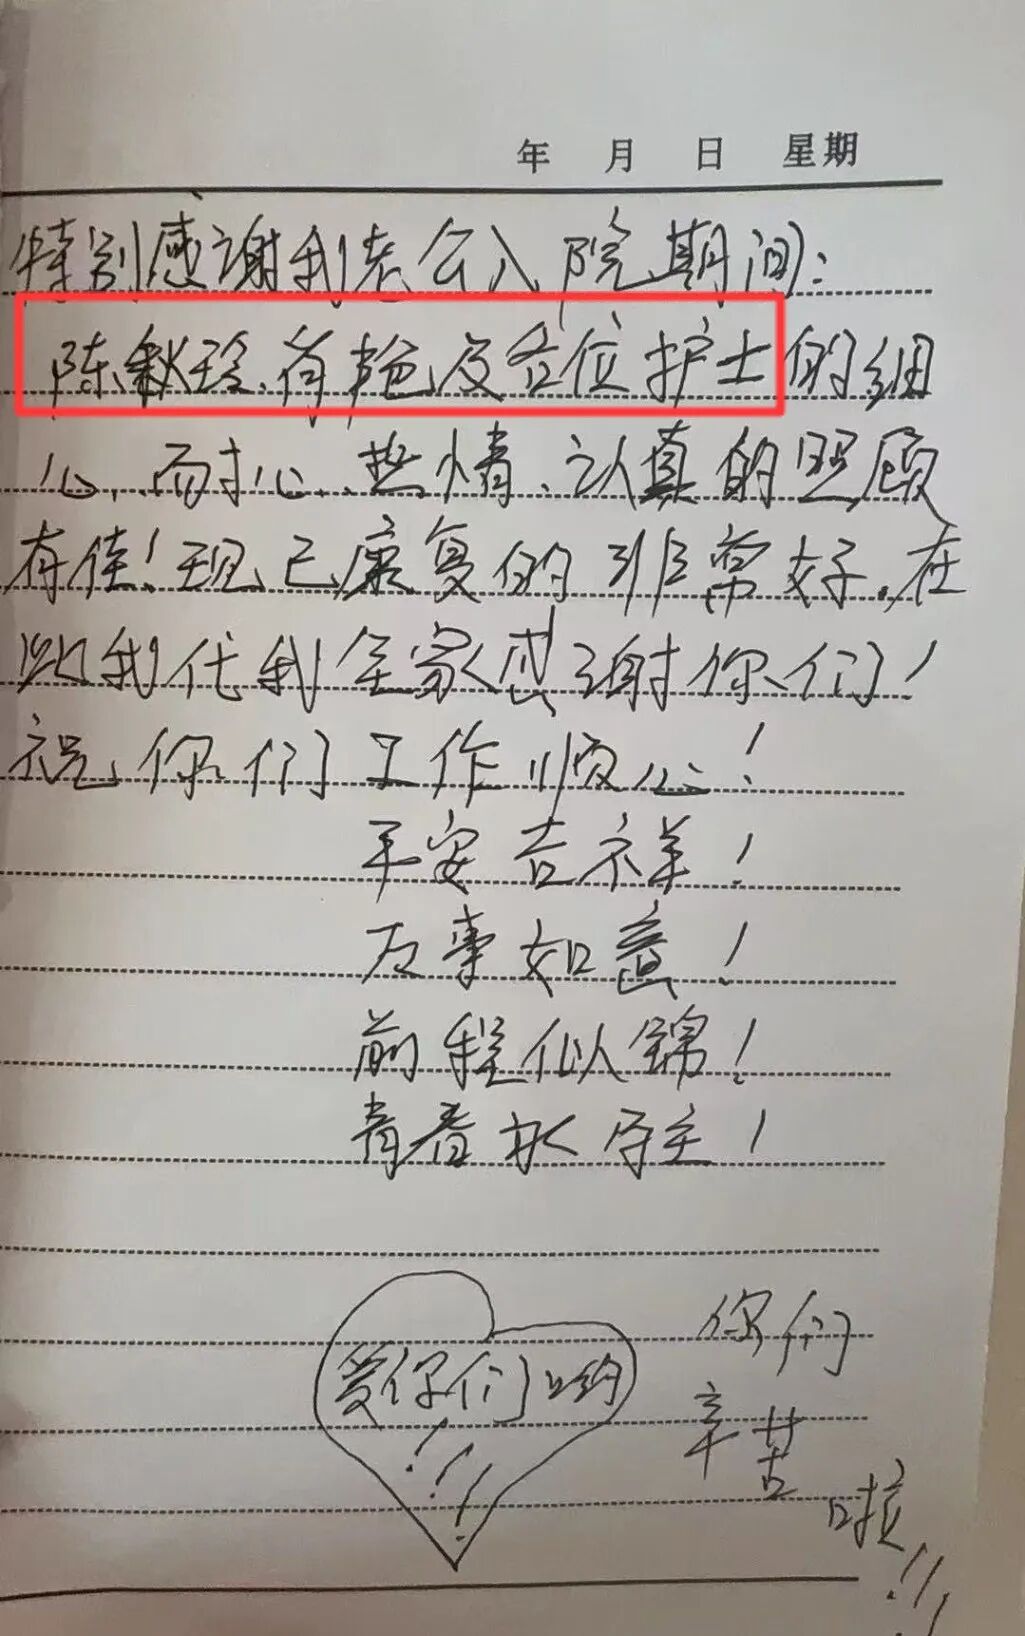 年 月 日 星期
特别感谢我老公入院期间:
陈秋玲、肖艳及各位护士的细
心、而才心、热情、认真的照顾
有佳!现已康复的非常好,在
此我代我全家感谢你们!
祝你们工作顺心!
平安吉祥!
万事如意!
前程似锦!
青春永驻!
爱你们哟
!!!
你们
辛苦
啦
!!!